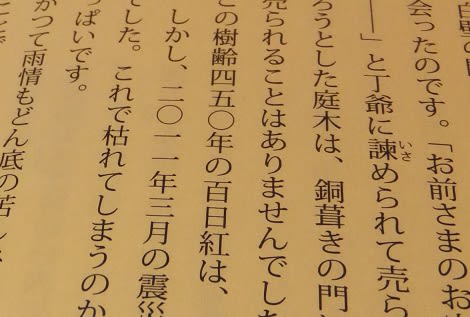 会ったのです。「お前さまのお
――」と丁爺に諫められて売ら
いさ
ろうとした庭木は、銅葺きの門
売られることはありませんでした
この樹齢四五〇年の百日紅は、
しかし、二〇一一年三月の震災
でした。これで枯れてしまうのか
っぱいです。
かつて雨情もどん底の苦し